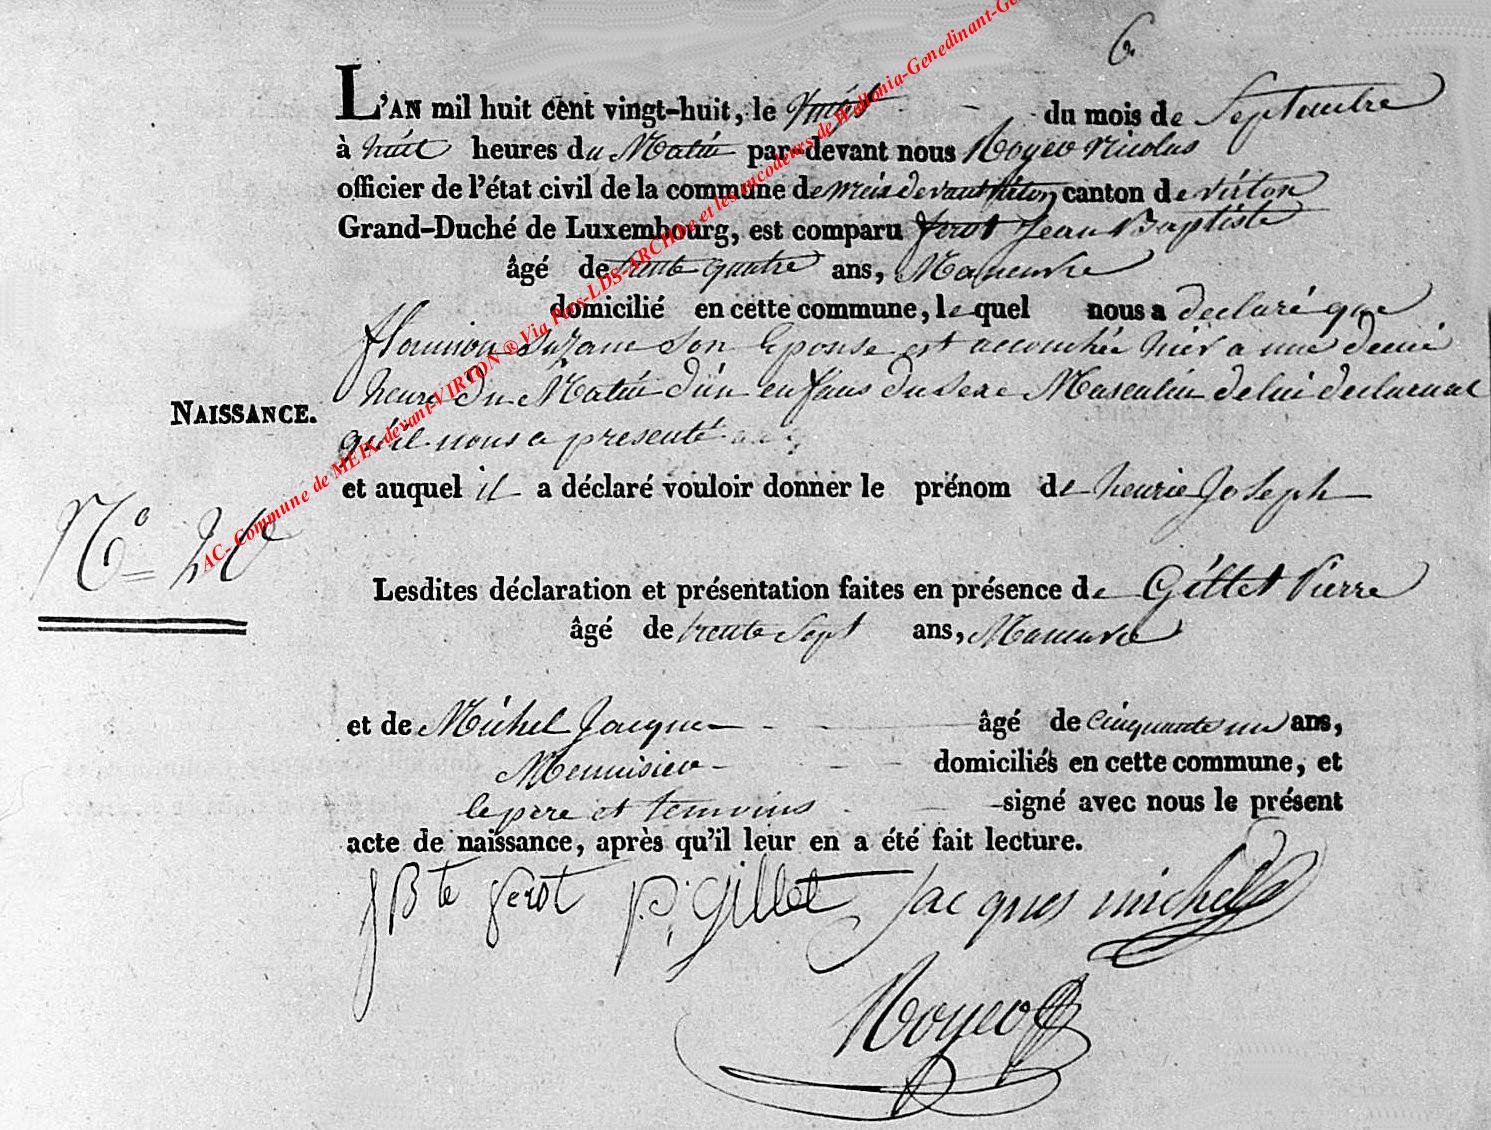 6.
L'AN mil huit cent vingt-huit, le Vingt du mois de Septembre
à huit heures du Matin par-devant nous Noyer Nicolas
officier de l'état civil de la commune de meix devant virton canton de virton
Grand-Duché de Luxembourg, est comparu ferot Jean Baptiste
âgé de trente quatre ans, Maneuvre
domicilié en cette commune, lequel nous a declaré que
son Epouse est accouchée hier a une demi
heure du Matin d'un enfans du sexe Masculin de lui declarant
NAISSANCE.
qu'il nous a presenté
et auquel il a déclaré vouloir donner le prénom de henrie Joseph
N° 20
Lesdites déclaration et présentation faites en présence de Gillet Pierre
âgé de trente Sept ans, Maneuvre
et de Michel Jacque âgé de Cinquante un ans,
Menuisier domiciliés en cette commune, et
le pere et temoins signé avec nous le présent
acte de naissance, après qu'il leur en a été fait lecture.
JBte ferot P. Gillet Jacques michel
Noyer
AC-Commune de MEIX-devant-VIRTON ® Via Fms-LDS-ARCHI et les encodeurs de Wallonia-Genedinant-Ge